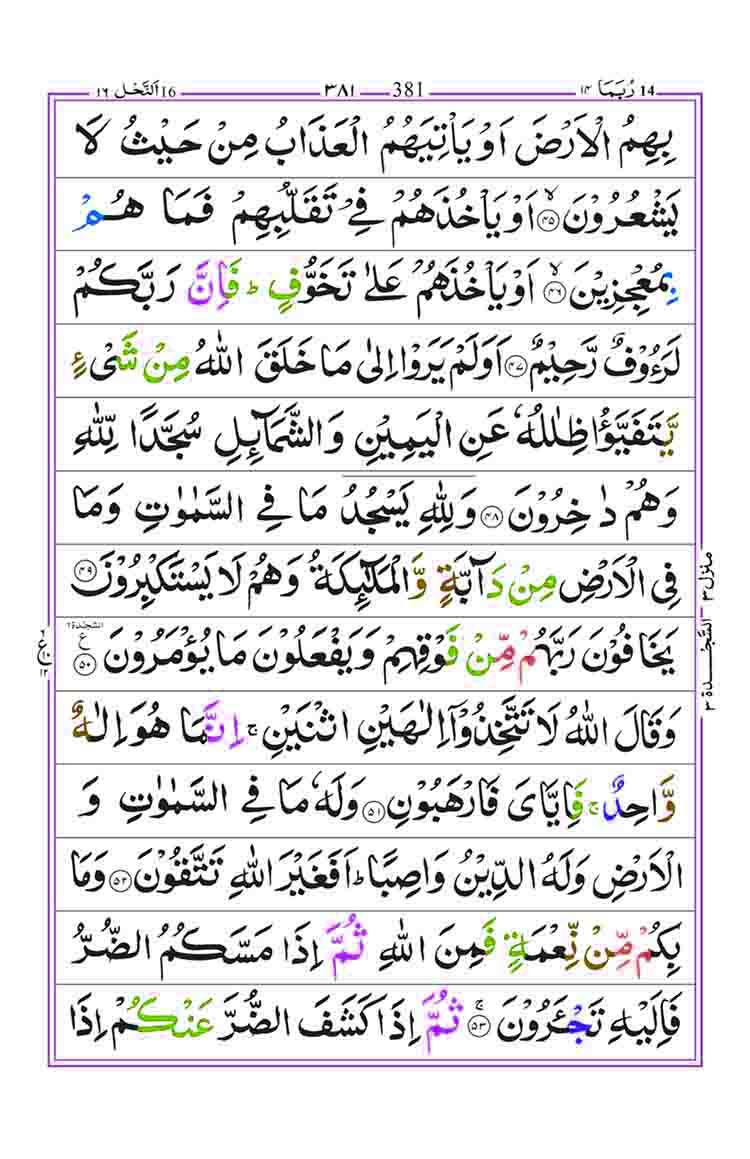 14 رُبَمَا ١٤ 381 ٣٨١ 16 اَلنَّحْل ١٦
بِهِمُ الْاَرْضَ اَوْ يَاْتِيَهُمُ الْعَذَابُ مِنْ حَيْثُ لَا
يَشْعُرُوْنَ ۙ﴿٤٥﴾ اَوْ يَاْخُذَهُمْ فِيْ تَقَلُّبِهِمْ فَمَا هُمْ
بِمُعْجِزِيْنَ ۙ﴿٤٦﴾ اَوْ يَاْخُذَهُمْ عَلٰى تَخَوُّفٍ ؕ فَاِنَّ رَبَّكُمْ
لَرَءُوْفٌ رَّحِيْمٌ ﴿٤٧﴾ اَوَلَمْ يَرَوْا اِلٰى مَا خَلَقَ اللّٰهُ مِنْ شَيْءٍ
يَّتَفَيَّؤُا ظِلٰلُهٗ عَنِ الْيَمِيْنِ وَالشَّمَآئِلِ سُجَّدًا لِّلّٰهِ
وَهُمْ دٰخِرُوْنَ ﴿٤٨﴾ وَلِلّٰهِ يَسْجُدُ مَا فِي السَّمٰوٰتِ وَمَا
فِي الْاَرْضِ مِنْ دَآبَّةٍ وَّالْمَلٰٓئِكَةُ وَهُمْ لَا يَسْتَكْبِرُوْنَ ﴿٤٩﴾
يَخَافُوْنَ رَبَّهُمْ مِّنْ فَوْقِهِمْ وَيَفْعَلُوْنَ مَا يُؤْمَرُوْنَ ﴿٥٠﴾ السَّجْدَة ع
وَقَالَ اللّٰهُ لَا تَتَّخِذُوْۤا اِلٰهَيْنِ اثْنَيْنِ ۚ اِنَّمَا هُوَ اِلٰهٌ
وَّاحِدٌ ۚ فَاِيَّايَ فَارْهَبُوْنِ ﴿٥١﴾ وَلَهٗ مَا فِي السَّمٰوٰتِ وَ
الْاَرْضِ وَلَهُ الدِّيْنُ وَاصِبًا ؕ اَفَغَيْرَ اللّٰهِ تَتَّقُوْنَ ﴿٥٢﴾ وَمَا
بِكُمْ مِّنْ نِّعْمَةٍ فَمِنَ اللّٰهِ ثُمَّ اِذَا مَسَّكُمُ الضُّرُّ
فَاِلَيْهِ تَجْـَٔرُوْنَ ۚ﴿٥٣﴾ ثُمَّ اِذَا كَشَفَ الضُّرَّ عَنْكُمْ اِذَا
منزل ٣
السَّجْدة ٣
ع ١٢